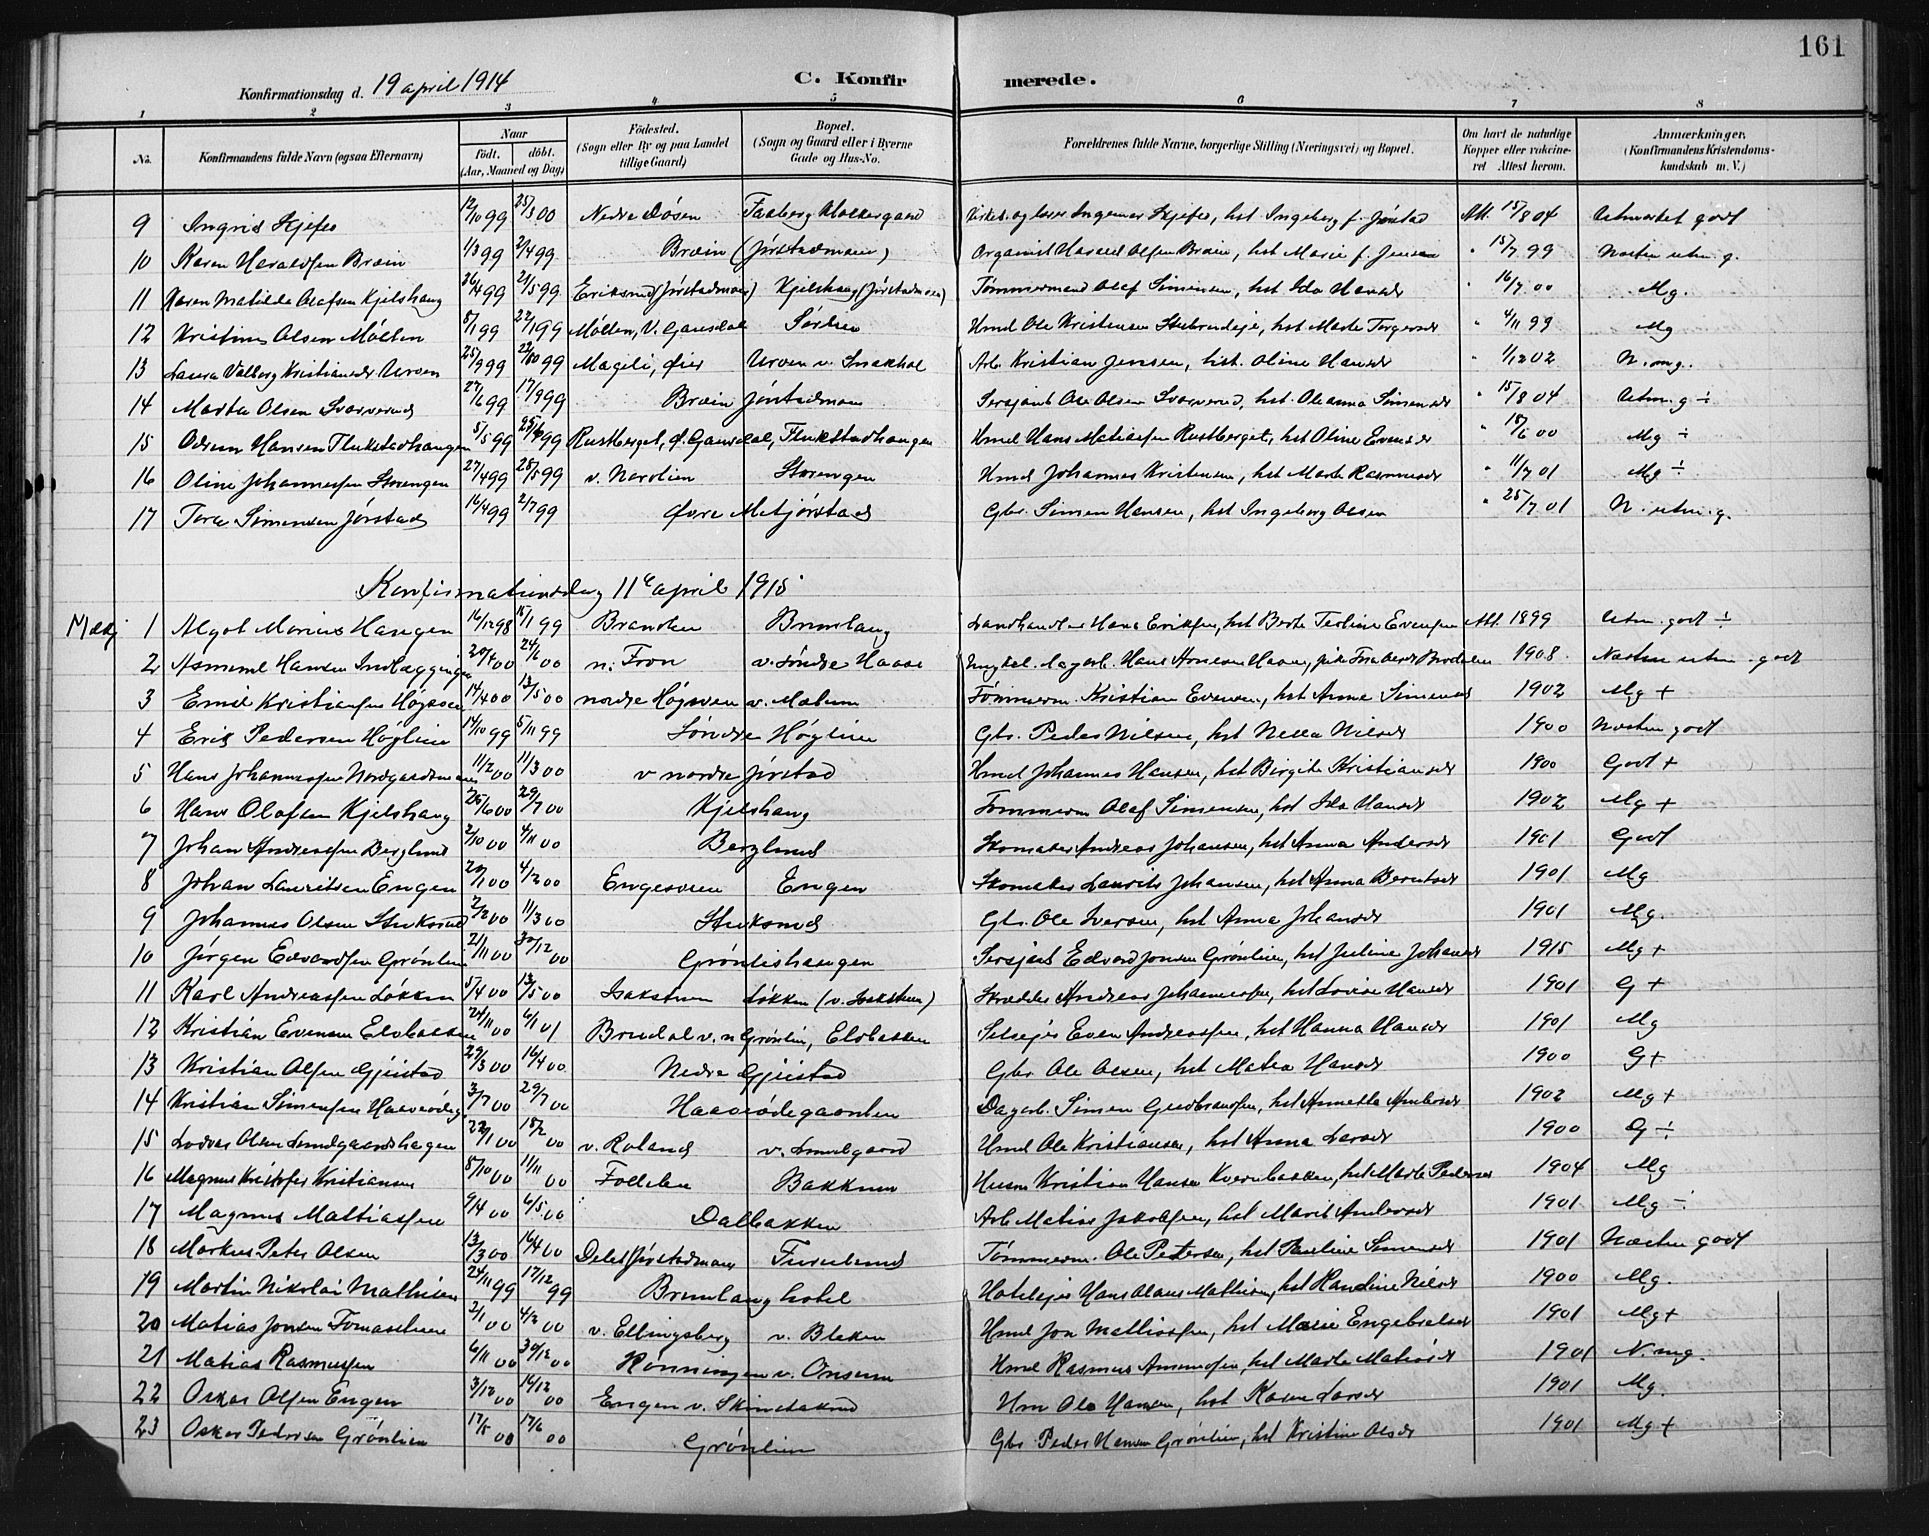 161
Konfirmationsdag d. 19 april 1914
C. Konfirmerede.
1 2 3 4 5 6 7 8
No. Konfirmandens fulde Navn (ogsaa Efternavn) Naar födt. döbt. (Aar, Maaned og Dag) Födested. (Sogn eller By og paa Landet tillige Gaard) Bopæl. (Sogn og Gaard eller i Byerne Gade og Hus-No. Forældrenes fulde Navne, borgerlige Stilling (Næringsvei) og Bopæl. Om havt de naturlige Kopper eller vakcineret Attest herom. Anmærkninger. (Konfirmandens Kristendomskundskab m. V.)
9 Ingrid Skjefes 12/10 99 25/3 00 Nedre Døsen Faaberg Klokkergaard Kirkes. og lærer Ingemar Skjefes, hst. Ingeborg f. Jørstad Att. 15/8 04 Utmerket godt
10 Karen Haraldsen Bræin 1/3 99 2/4 99 Bræin (Jørstadmoen) Organist Harald Olsen Bræin, hst Marie f. Jensen " 15/7 99 Næsten utm. g.
11 Karen Matilde Olafsen Kjelshaug 26/4 99 21/5 99 Eriksrud (Jørstadmoen) Kjelshaug (Jørstadmoen) Tømmermand Olaf Simensen, hst Ida Hansdr " 16/7 00 Mg.
12 Kristine Olsen Mølten 8/1 99 22/1 99 Mølten, V. Gausdal Sørlien Hmd Ole Kristensen, hst Marte Torgersdr " 4/11 99 Mg
13 Laura Valborg Kristiansdr Urven 25/9 99 22/10 99 Mageli, Øier Urven v. Smakhol Arb. Kristian Jensen, hst. Oline Hansdr " 1/12 02 N. mg.
14 Marta Olsen Svarverud 27/6 99 17/9 99 Bræin Jørstadmoen Sersjant Ole Olsen Svarverud, hst. Oleanna Simensdr " 15/8 04 Utm. g ÷
15 Odrun Hansen Flukstadhaugen 5/5 99 99 Rustberget, Ø. Gausdal, Flukstadhaugen Hmd Hans Matiassen Rustberget, hst Oline Evensdr " 18/6 00 Mg ÷
16 Oline Johannessen Storengen 27/4 99 28/5 99 v. Nordlien Storengen Hmd Johannes Kristensen, hst Marte Rasmusdr " 11/7 01 Mg ÷
17 Tora Simensen Jørstad 16/4 99 2/7 99 Øvre Metjørstad Gbr. Simen Hansen, hst Ingeborg Olsen " 25/7 01 N. utm. g.
Konfirmationsdag 11te april 1915
1 Algot Marius Haugen 16/12 98 15/1 99 Brandrud Brunlaug Landhandler Hans Eriksen, hst Berte Teoline Evensen Att. 1899 Utm. godt ÷
2 Asmund Hansen 20/4 00 24/6 00 n. Fron v. Søndre Haave Ungkal. Dagarb. Hans Arnesen Haave, pike 1908 Næsten utm. godt
3 Emil Kristiansen Høgsveen 14/4 00 13/5 00 nordre Høgsveen v. Mælum Tømmerm. Kristian Evensen, hst Anne Simensdr 1902 Mg +
4 Erik Pedersen Høglien 14/10 99 5/11 99 Søndre Høglien Gbr. Peder Nilsen, hst Nella Nilsdr 1900 Næsten godt
5 Hans Johannessen Nordgaardsmoen 11/2 00 11/3 00 v nordre Jørstad Hmd Johannes Hansen, hst Birgite Kristiansdr 1900 Godt +
6 Hans Olafsen Kjelshaug 25/6 00 29/7 00 Kjelshaug Tømmerm Olaf Simensen, hst Ida Hansdr 1902 Mg +
7 Johan Andreassen Berglund 2/10 00 4/11 00 Berglund Skomaker Andreas Johansen, hst Anna Andersdr 1901 Godt
8 Johan Lauritsen Engen 20/1 00 4/2 00 Engesveen Engen Skomaker Laurits Johansen, hst Anna Berntsdr 1901 Mg
9 Johannes Olsen Stuksrud 2/2 00 11/3 00 Stuksrud Gbr. Ole Iversen, hst Anna Johansdr 1901 Mg.
10 Jørgen Edvardsen Grønlien 21/11 00 30/12 00 Grønlishaugen Sersjant Edvard Jonsen Grønlien, hst Juline Johansdr 1915 Mg +
11 Karl Andreassen Løkken 5/4 00 13/5 00 Isakstuen Løkken (v. Isakstuen) Skrædder Andreas Johannessen, hst Lovise Hansdr 1901 G +
12 Kristian Evensen Elvbakken 24/11 00 6/1 01 Brudal v. n Grønlien, Elvbakken Selveier Even Andreassen, hst Hanna Hansdr 1901 Mg
13 Kristian Olsen Gjeistad 29/3 00 16/4 00 Nedre Gjeistad Gbr Ole Olsen, hst Matea Hansdr 1900 G +
14 Kristian Simensen Haaveødeg. 3/7 00 29/7 00 Haaveødegaarden Dagarb. Simen Gudbrandsen, hst Annette Andersdr 1902 Mg +
15 Lodvar Olsen Lundgaardshagen 22/1 00 18/2 00 v. Roland v. Lundgaard Hmd Ole Kristiansen, hst Anna Larsdr 1900 G ÷
16 Magnus Kristofer Kristiansen 5/10 00 11/11 00 Follebu Bakken Husm Kristian Hansen Kvernbakken, hst Marte Pedersdr 1904 Mg
17 Magnus Mattiassen 9/4 00 6/5 00 Dalbakken Arb. Matias Jakobsen, hst Marit Andersdr 1901 Mg ÷
18 Markus Peter Olsen 13/3 00 16/4 00 Delet Jørstadmoen Furulund Tømmerm. Ole Petersen, hst Pauline Simensdr 1901 Næsten godt
19 Martin Nikolai Mathisen 24/11 99 17/12 99 Brunlaug hotel Hoteleier Hans Olaus Mathisen, hst Randine Nilsdr 1900 Mg.
20 Matias Jonsen Tomasstuen 2/1 00 4/2 00 v. Ellingsberg v. Bleken Hmd Jon Mathiassen, hst Marie Engebretsdr 1901 Mg +
21 Matias Rasmussen 6/11 00 30/12 00 Rønningen v. Onsum Hmd Rasmus Amundsen, hst Marte Matiasdr 1901 N. mg.
22 Oskar Olsen Engen 3/12 00 14/12 00 Engen v. Hm Ole Hansen, hst Karen Larsdr 1901 Mg.
23 Oskar Pedersen Grønlien 17/5 00 17/6 00 Grønlien Gbr. Peder Hansen Grønlien, hst Kristine Olsdr 1901 Mg +